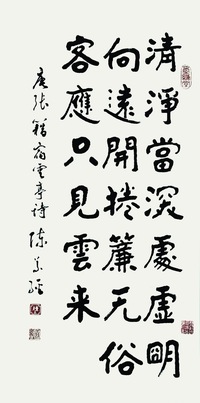 清淨當深處虛明
向遠開捲簾无俗
客應只見雲来
唐張籍宿雲亭詩 陳